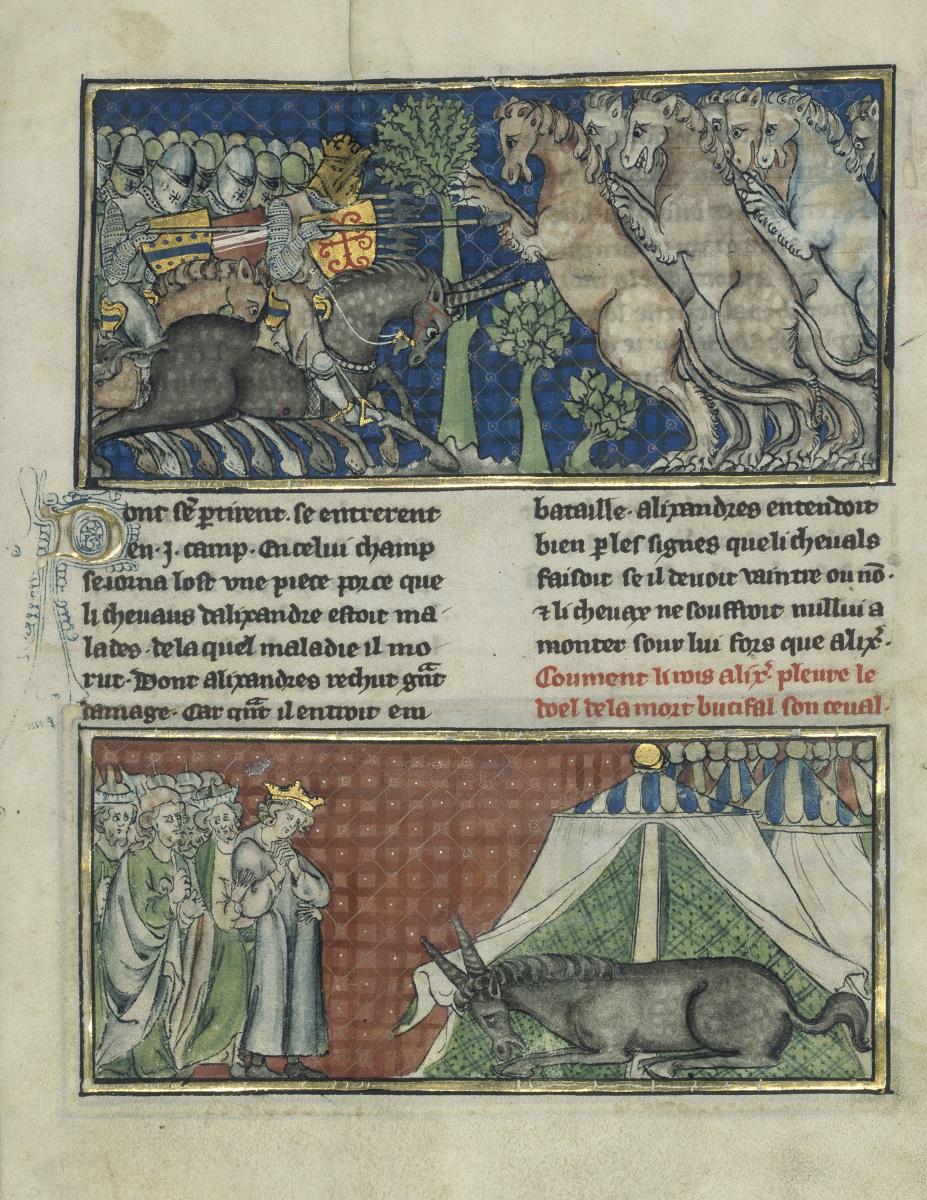 Dont se p̱tirent. se entrerent
en .j. camp. En celui champ
seiorna lost vne piece por ce que
li cheuaus dalixandre estoit ma
lades. de la quel maladie il mo
rut. Dont alixandres rechut gñt
damage. Car qñt il entroit em
bataille. alixandres entendoit
bien p̱ les signes que li cheuals
faisoit se il deuoit vaintre ou nō.
⁊ li cheuax ne souffroit nullui a
monter sour lui fors que alix̾.
Coument li rois alix̾. pleure le
doel de la mort bucifal son ceual.